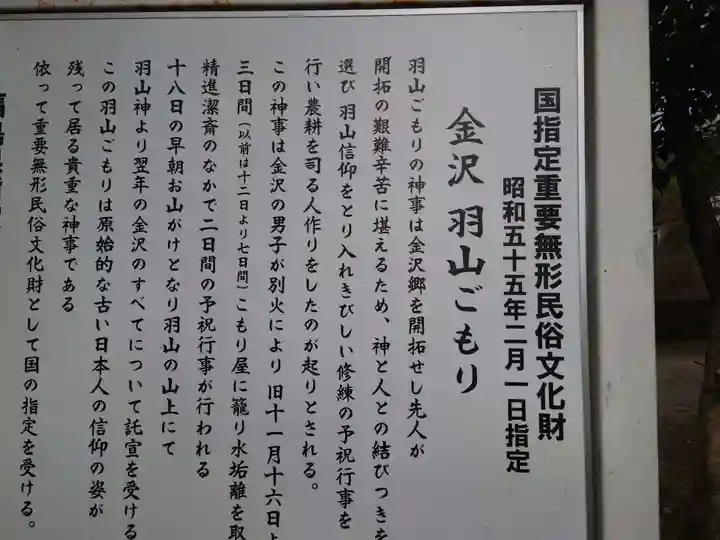 国指定重要無形民俗文化財
昭和五十五年二月一日指定
金沢 羽山ごもり
羽山ごもりの神事は金沢郷を開拓せし先人が
開拓の艱難辛苦に堪えるため、神と人との結びつきを
選び 羽山信仰をとり入れきびしい修練の予祝行事を
行い農耕を司る人作りをしたのが起りとされる。
この神事は金沢の男子が別火により 旧十一月十六日よ
三日間(以前は十二日より七日間)こもり屋に籠り水垢離を取
精進潔斎のなかで二日間の予祝行事が行われる
十八日の早朝お山がけとなり羽山の山上にて
羽山神より翌年の金沢のすべてについて託宣を受ける
この羽山ごもりは原始的な古い日本人の信仰の姿が
残って居る貴重な神事である
依って重要無形民俗文化財として国の指定を受ける。